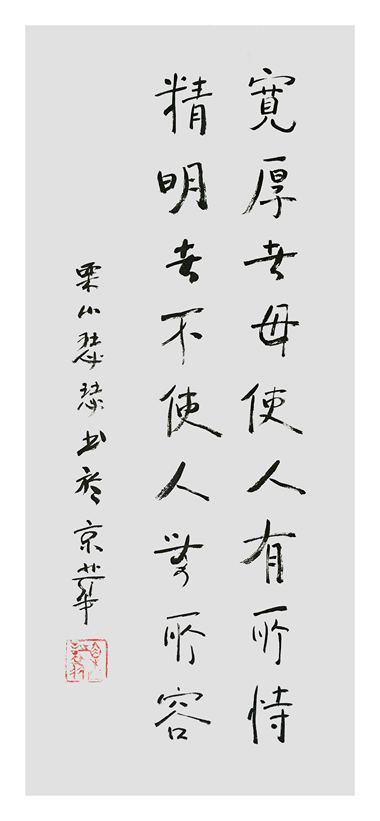 寬厚者毋使人有所恃
精明者不使人無所容
栗山 书於京華